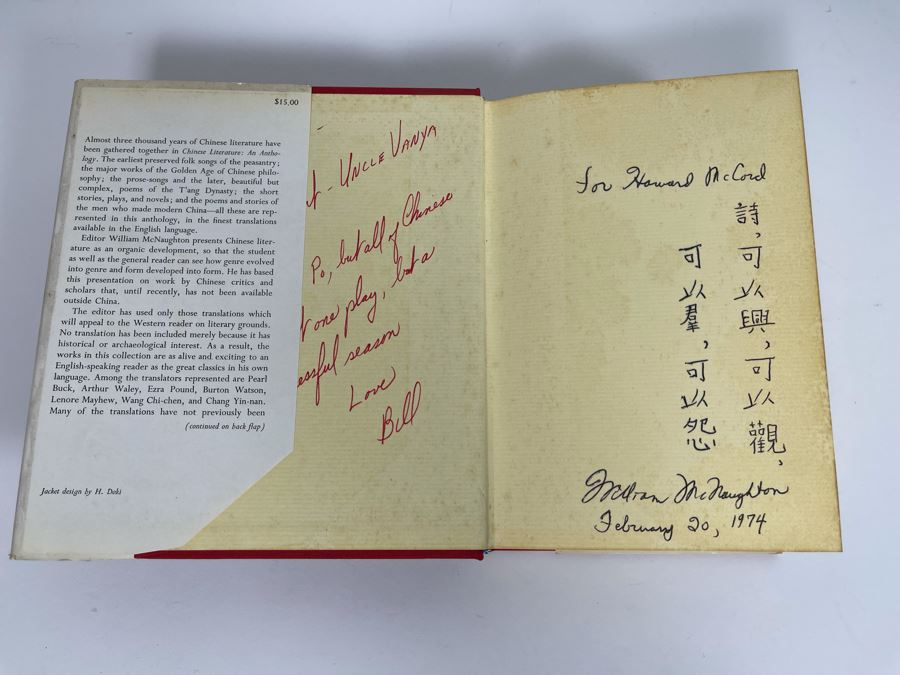 $15.00
Almost three thousand years of Chinese literature have
been gathered together in Chinese Literature: An Antho-
logy. The earliest preserved folk songs of the peasantry;
the major works of the Golden Age of Chinese philo-
sophy; the prose-songs and the later, beautiful but
complex, poems of the T'ang Dynasty; the short
stories, plays, and novels; and the poems and stories of
the men who made modern China—all these are rep-
resented in this anthology, in the finest translations
available in the English language.
Editor William McNaughton presents Chinese liter-
ature as an organic development, so that the student
as well as the general reader can see how genre evolved
into genre and form developed into form. He has based
this presentation on work by Chinese critics and
scholars that, until recently, has not been available
outside China.
The editor has used only those translations which
will appeal to the Western reader on literary grounds.
No translation has been included merely because it has
historical or archaeological interest. As a result, the
works in this collection are as alive and exciting to an
English-speaking reader as the great classics in his own
language. Among the translators represented are Pearl
Buck, Arthur Waley, Ezra Pound, Burton Watson,
Lenore Mayhew, Wang Chi-chen, and Chang Yin-nan.
Many of the translations have not previously been
(continued on back flap)
Jacket design by H. Doki
- UNCLE VANYA
Po, but all of Chinese
one play, but a
essful season
Love
Bill
For Howard McCord
詩，可以興，可以觀，
可以羣，可以怨
William McNaughton
February 20, 1974